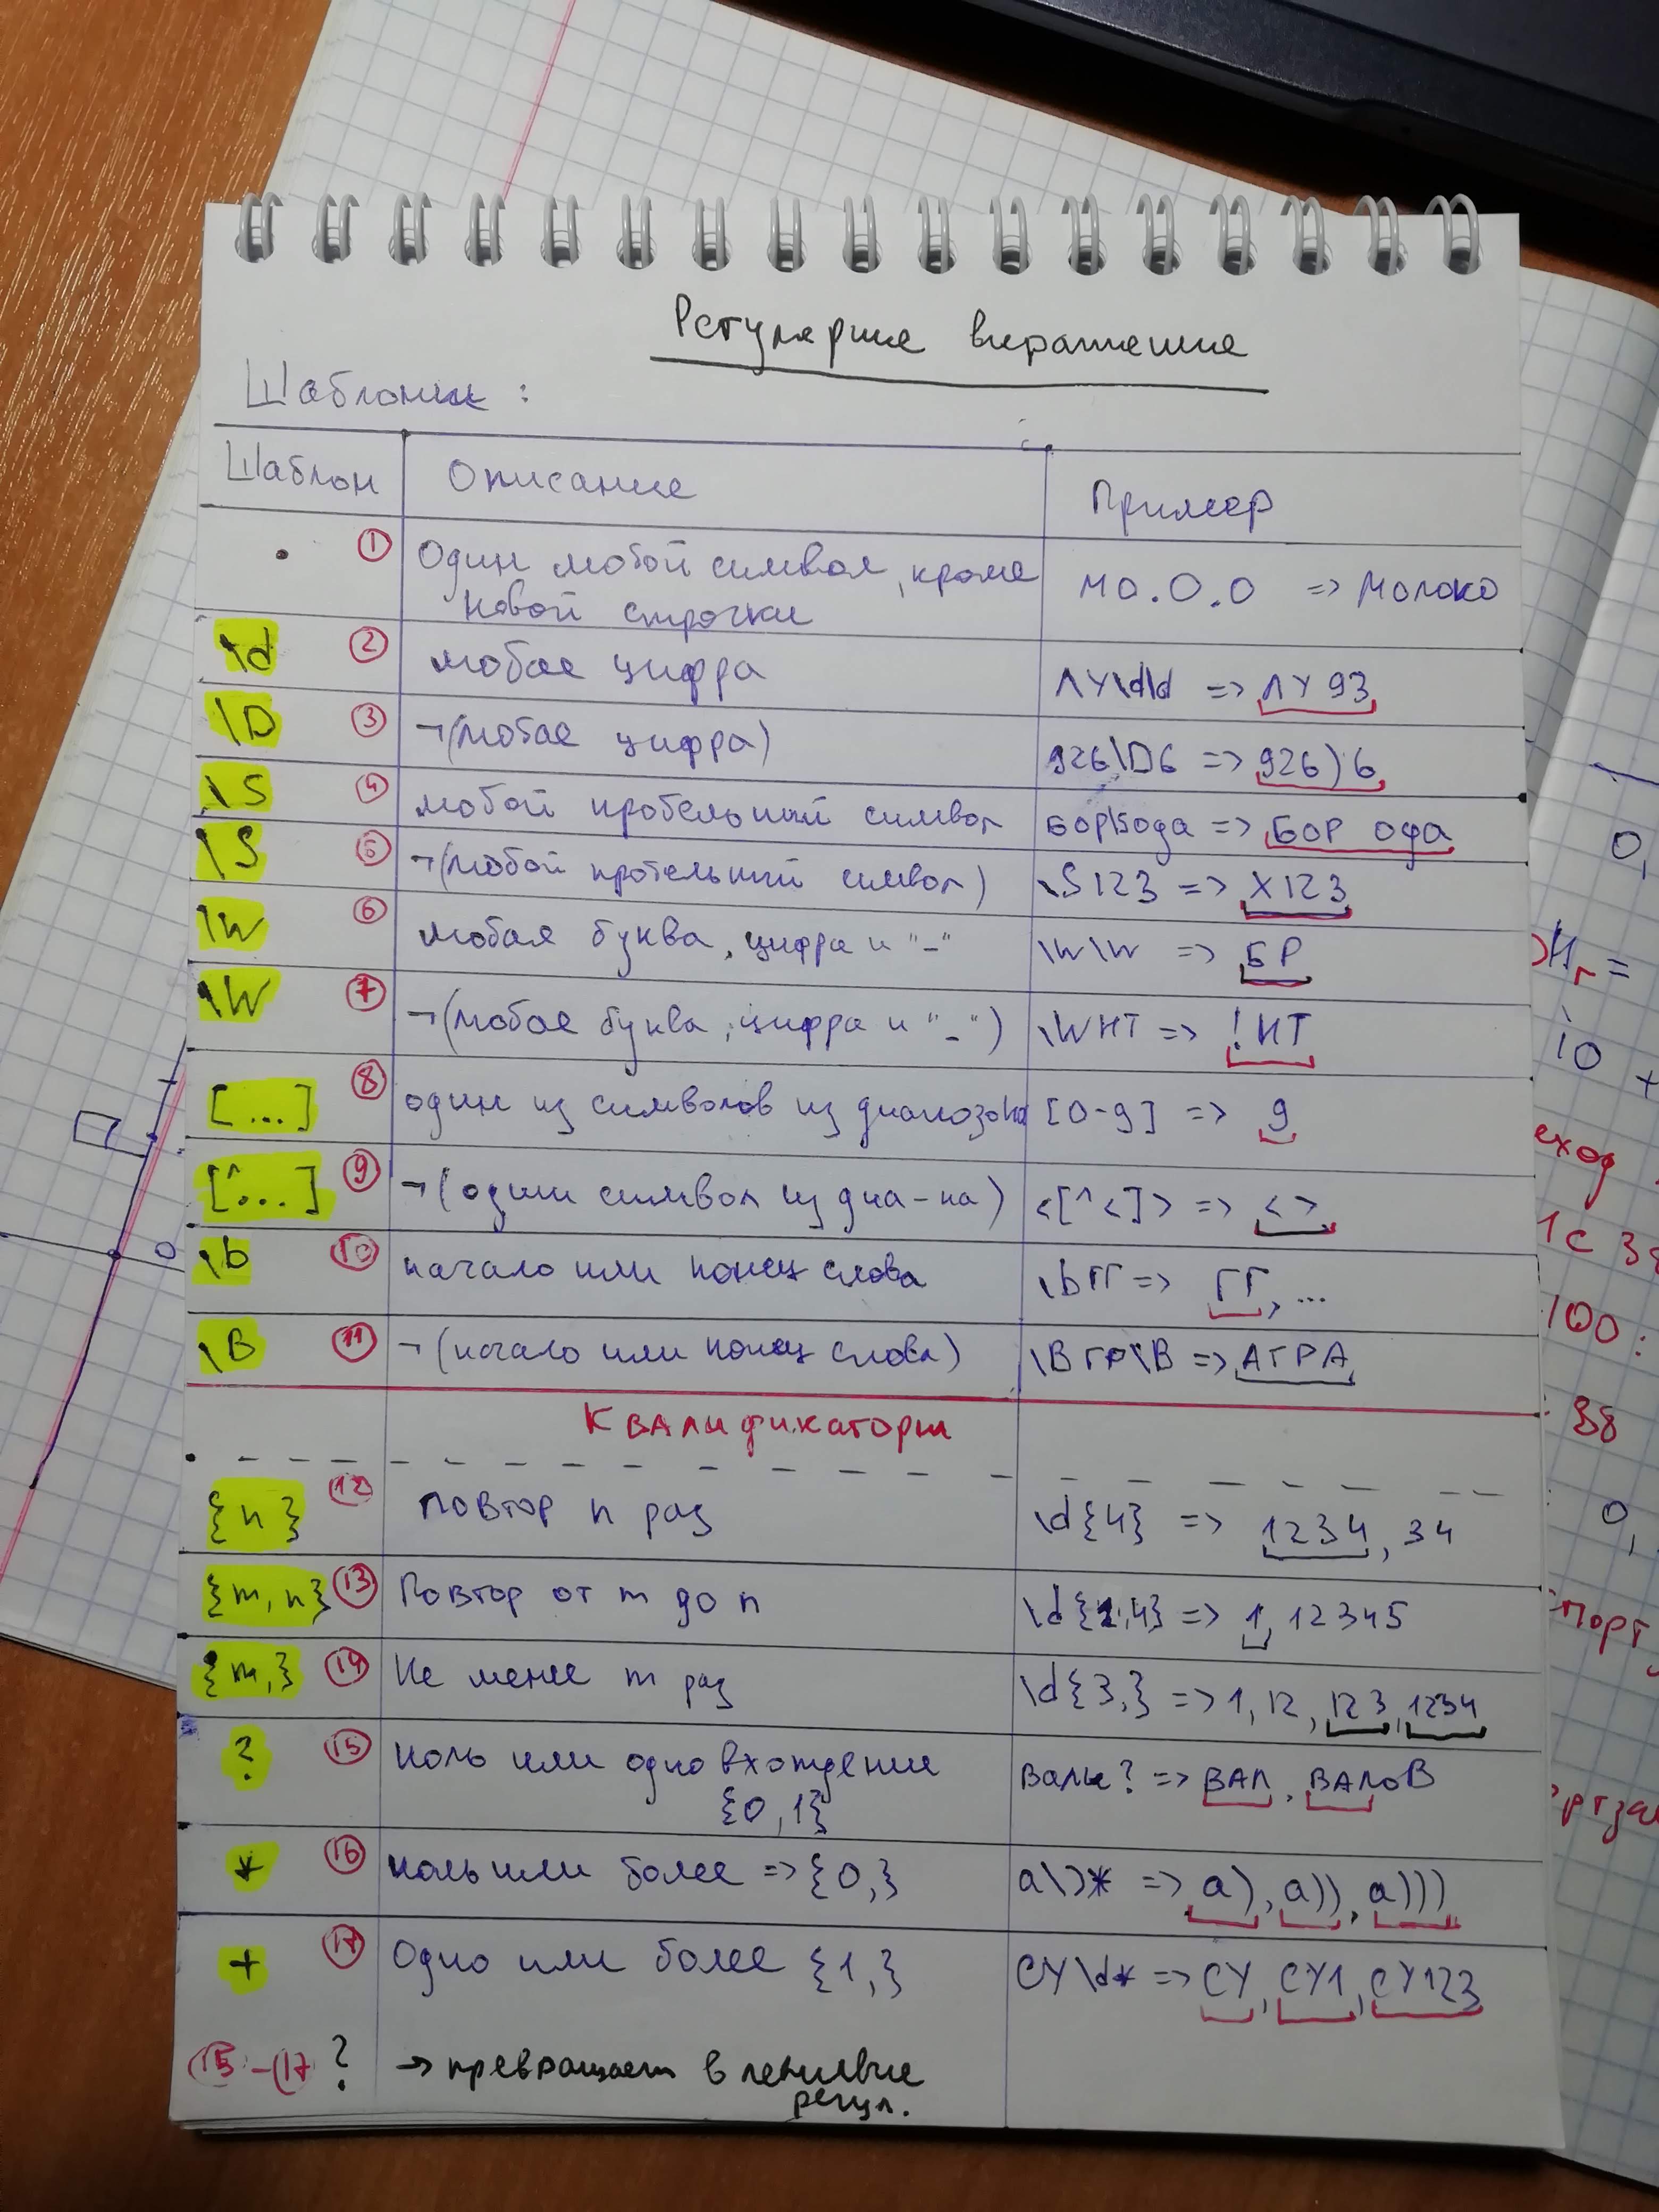 Регулярные выражения
Шаблоны :
Шаблон Описание Пример
. ① Один любой символ, кроме новой строчки МО.О.О => МОЛОКО
\d ② любая цифра ЛУ\d\d => ЛУ93
\D ③ ¬(любая цифра) 926\D6 => 926)6
\s ④ любой пробельный символ БОР\sода => БОР ода
\S ⑤ ¬(любой пробельный символ) \S123 => X123
\w ⑥ любая буква, цифра и "_" \w\w => БР
\W ⑦ ¬(любая буква, цифра и "_") \WИТ => !ИТ
[...] ⑧ один из символов из диапозона [0-9] => 9
[^...] ⑨ ¬(один символ из диа-на) <[^<]> => <>
\b ⑩ начало или конец слова \bГГ => ГГ, ...
\B ⑪ ¬(начало или конец слова) \BГР\B => АГРА
Квалификаторы
{n} ⑫ Повтор n раз \d{4} => 1234, 34
{m,n} ⑬ Повтор от m до n \d{2,4} => 1, 12345
{m,} ⑭ Не менее m раз \d{3,} => 1, 12, 123, 1234
? ⑮ ноль или одно вхождение {0,1} => ВАЛ, ВАЛОВ
* ⑯ ноль или более => {0,} а\)* => а), а)), а)))
+ ⑰ Одно или более {1,} СУ\d* => СУ, СУ1, СУ123
⑮-⑰ ? → превращает в ленивые
регул.
0,
10 +
1с
100:
38
0,
0